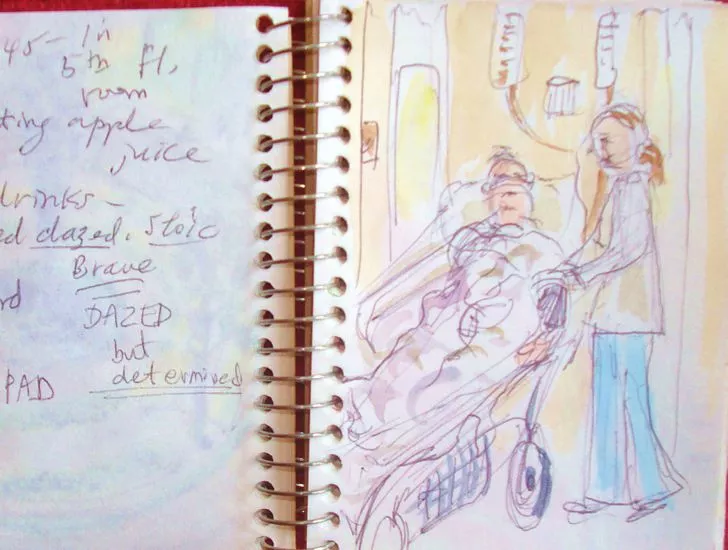 45 - In
5th Fl,
room
ting apple
juice
drinks -
ed dazed. Stoic
Brave
rd
DAZED
but
determined
PAD